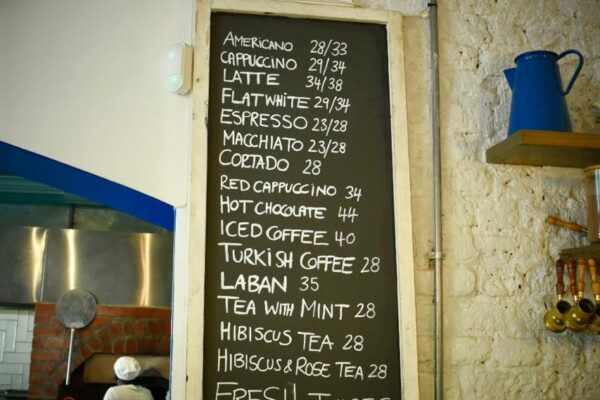 AMERICANO 28/33
CAPPUCCINO 29/34
LATTE 34/38
FLAT WHITE 29/34
ESPRESSO 23/28
MACCHIATO 23/28
CORTADO 28
RED CAPPUCCINO 34
HOT CHOCOLATE 44
ICED COFFEE 40
TURKISH COFFEE 28
LABAN 35
TEA WITH MINT 28
HIBISCUS TEA 28
HIBISCUS & ROSE TEA 28
FRESH JUICES